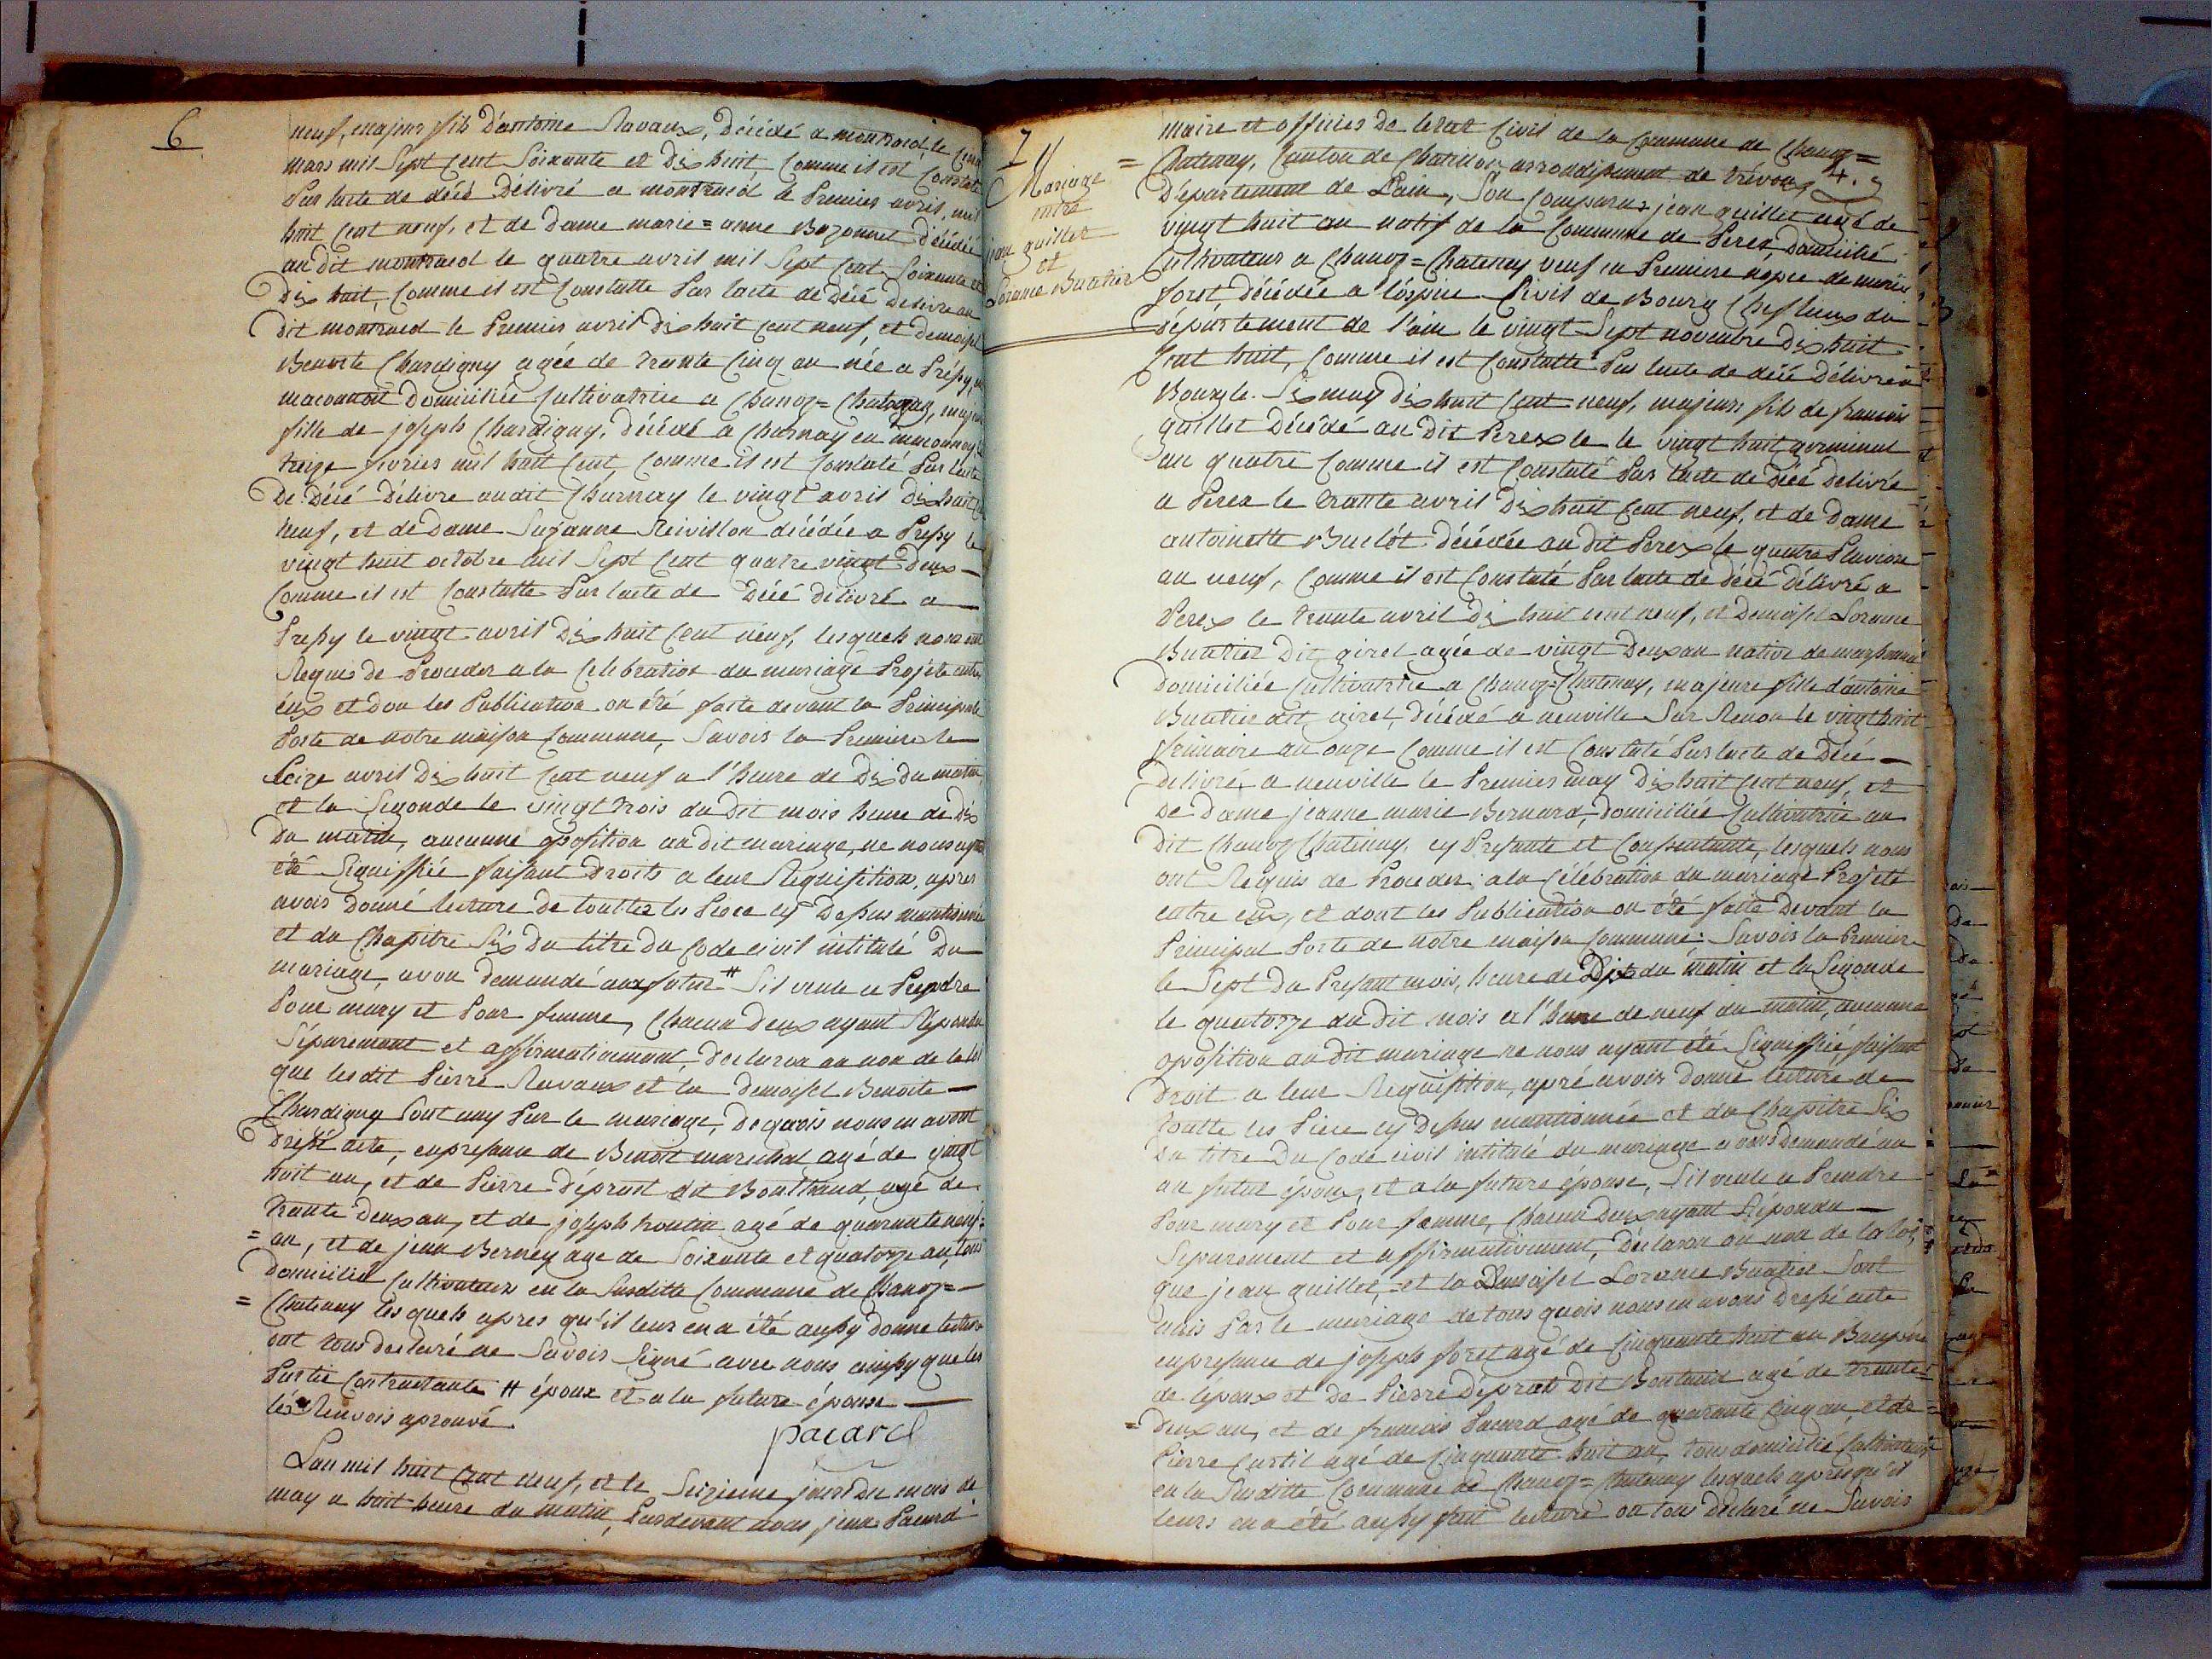 6
neuf, majeur fils d'antoine Ravaux, Décédé a montraid, le Cinq
mars mil Sept Cent Soixante et Dix huit, Comme il est Constaté
Par lacte de décé Délivré a montraid le Premier avril, mil
huit Cent neuf, et de Dame marie=anne Bozonnet Décédée
au dit montraid le quatre avril mil Sept Cent Soixante et
Dix huit, Comme il est Constatte Par lacte de Décé Delivre au
dit montraid le Premier avril Dix huit Cent neuf, et demoisel
Benoite Chardigny agée de trante Cinq an née a Prépy, en
maconnoit Domiciliée Cultivatrice a Chanoz=Chatenay, majeur
fille de joseph Chardigny, Décédé a Charnay en maconnoy le
treize fevries mil huit Cent, Comme il est Constaté Par lacte
De Décé Délivre audit Charnay le vingt avril Dix huit Cent
neuf, et de Dame Suzanne Reivillon décédée a Prepy le
vingt huit octobre mil Sept Cent quatre vingt Deux —
Comme il est Constatte Par lacte de Décé delivré a —
Prepy le vingt avril Dix huit Cent neuf, lesquels nous ont
Requis de Proceder a la Celebration du mariage Projeté entre
éux et don les Publication on été faite devant la Principale
Porte de notre maison Commune, Savois la Premiere le
Seize avril Dix huit Cent neuf a l'heure de Dix du matin
et la Segonde le vingt trois du Dit mois heure de Dix
Du matin, aucunne oposition au dit mariage, ne nous ayant
été Signiffiée faisant Droits a leur Requisition, apres
avois donné lecture de touttes les Piece cy Depus mantionnée
et du Chapitre Six Du titre Du Code civil intitulé Du
mariage, avon demandé aux futur # Sil veule ce Prendre
Pour mary et Pour femme, Chacun Deux ayant Repondu
Séparemant et affirmativemant, declaron au non de la loi
que les dit Pierre Ravaux et la Demoisel Benoite —
Chardigny Sont uny Par le mariage, De quois nous en avont
Dressé acte, enpresance de Benoit marichal agé de vingt
huit an, et de Pierre Déprast dit Bouthaud, agé de
trante Deux an, et de joseph hontin agé de quarante neuf=
=an, et de jean Berney age de Soixante et quatorze an, tous
domicilié Cultivateux en la Susditte Commune de Chanoz=
=Chatenay les quels apres qu'il leur en a été aupy donne lecture
ont tous declaré ne Savois Signé avec nous ainpy que les
Partie Contractante # époux et a la future épouse —
les Renvois aprouvé
pacard
Lan mil huit Cent neuf, et le Seizieme jour Du mois de
may a huit heure du matin, Pardevant nous jean Pacard
7
Mariage
entre
jean guillet
et
Lorance Buatier
4.
maire et officies de letat Civil de la Commune de Chanoz=
=Chatenay, Canton de Chatillon, arrondisement de trévoux
Département de Lain, Son Comparus jean guillet agé de
vingt huit an natif de la Commune de Perex, Domicilié
Cultivateur a Chanoz=Chatenay veuf en Premiere nopce de marie
foret, Décédée a l'ospice Civil de Bourg Chef lieux du
département de l'ain le vingt Sept novembre Dix huit
Cent huit, Comme il est Constatté Par lacte de décé Délivré a
Bourg le Six may Dix huit Cent neuf, majeurs fils de francois
guillet Décédé au Dit Perex le le vingt huit germinal
an quatre Comme il est Constaté Par lacte de Décé delivré
a Perex le trante avril Dix huit Cent neuf, et de Dame
antoinette Buclét décédée au dit Perex le quatre Pluviose
an neuf, Comme il est Constaté Par lacte de Décé Délivré a
Perex le trante avril Dix huit cent neuf, et Demoisel Lorance
Buatier Dit giret agée de vingt Deux an native de marsonna
domiciliée Cultivatrice a Chanoz=Chatenay, majeure fille d'antoine
Buatier dit giret, Décédé a neuville Sur Renon le vingt huit
frimaire an onze Comme il est Constaté Par lacte de Décé —
delivré a neuville le Premier may Dix huit Cent neuf, et
de Dame jeanne marie Bernard, domiciliée Cultivatrice au
dit Chanoz Chatenay, cy Presante et Consentante, lesquels nous
ont Requis de Proceder a la Célébration du mariage Projeté
entre eux, et dont les Publication on été faitte Devant la
Principal Porte de notre maison Commune: Savois la Premiere
le Sept Du Present mois, heure de Dix du matin et la Segonde
le quatorze du dit mois a l'heure de neuf du matin, aucunne
oposition au dit mariage ne nous ayant été Signiffiée faisant
Droit a leur Requisition, apré avois donné lecture de
toutte les Piece cy Depus mantionnée et du Chapitre Six
Du titre Du Code civil intitulé du mariage avons Demandé au
au futur époux, et a la future épouse, Sil veule ce Prendre
Pour mary et Pour femme, Chacun Deux ayant Répondu —
Separement et affirmativement, Déclaron au non de la loi,
que jean guillet, et la Demoisel Lorance Buatier Sont
unis Par le mariage de tous quois nous en avons Dressé acte
enpresance de joseph foret agé de Cinquante huit an Beaupére
de lépoux et de Pierre Déprat Dit Boutaud agé de trante=
=Deux an, et de francois Pacard agé de quarante Cinq an, et de
Pierre Curtil agé de Cinquante huit an, tous domicilié Cultivateur
en la Susditte Commune de Chanoz=Chatenay lesquels apres qu'il
leurs en a été aupy fait lecture on tous declaré ne Savois